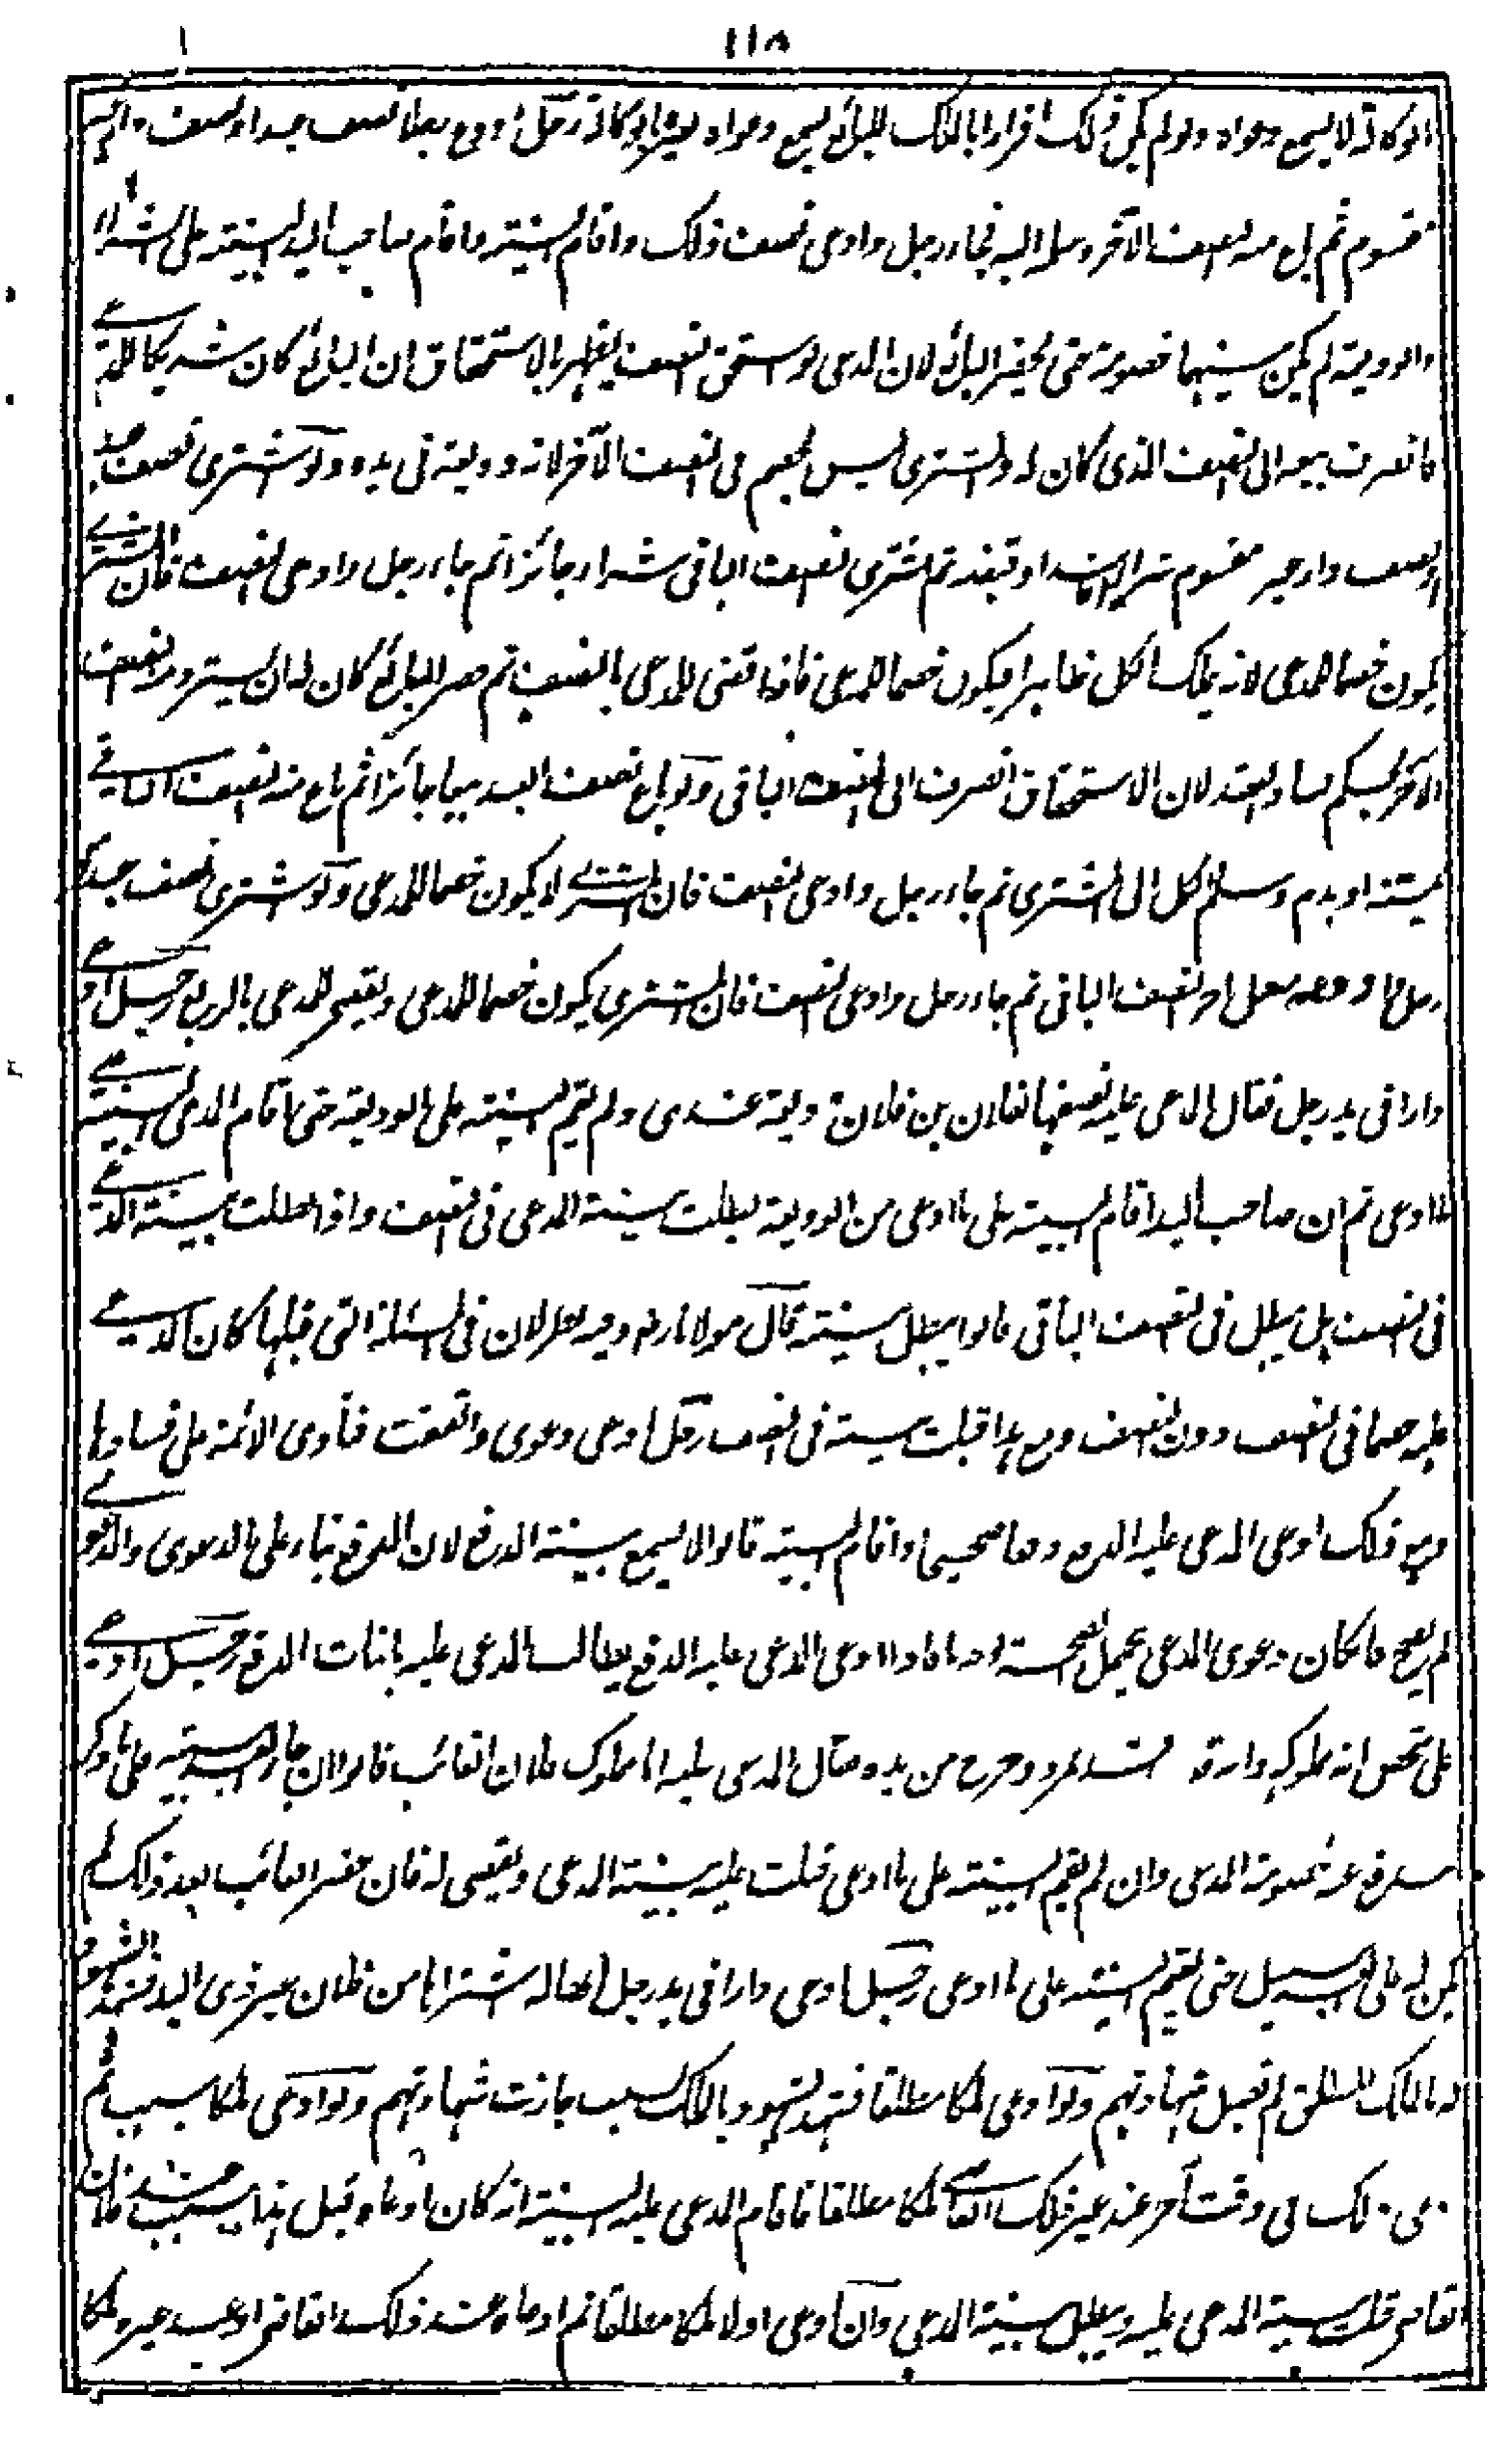 ١١٨
الوكالة لا يسمع دعواه ولو لم يكن ذلك اقرارا بالملك للبائع يسمع دعواه رجل اودع نصف عبد او نصف دار غير
مقسوم ثم باع منه النصف الآخر وسلم اليه فجاء رجل وادعى نصف ذلك واقام البينة واقام صاحب اليد البينة على الشراء
والوديعة لم يكن بينهما خصومة حتى يحضر البائع لان المدعى لو استحق النصف يظهر بالاستحقاق ان البائع كان شريكا للمدعى
فانصرف بيعه الى النصف الذى كان له والمشترى ليس بخصم فى النصف الآخر لانه وديعة فى يده ولو اشترى نصف عبد
او نصف دار غير مقسوم شراء فاسدا وقبضه ثم اشترى النصف الباقى شراء جائزا ثم جاء رجل وادعى النصف فان المشترى
يكون خصما للمدعى لانه يملك الكل ظاهرا فيكون خصما للمدعى فاذا قضى للمدعى بالنصف ثم حضر البائع كان له ان يسترد منه النصف
الآخر بحكم فساد العقد لان الاستحقاق انصرف الى النصف الباقى ولو باع نصف العبد بيعا جائزا ثم باع منه النصف الباقى
بميتة او بدم وسلم الكل الى المشترى ثم جاء رجل وادعى النصف فان المشترى لا يكون خصما للمدعى ولو اشترى نصف عبد
النصف الباقى ثم جاء رجل وادعى النصف فان المشترى يكون خصما للمدعى ويقضى للمدعى بالربع رجل ادعى
دارا فى يد رجل فقال المدعى عليه نصفها لفلان بن فلان وديعة عندى ولم يقم البينة على الوديعة حتى اقام المدعى البينة
لما ادعى ثم ان صاحب اليد اقام البينة على ما ادعى من الوديعة بطلت بينة المدعى فى النصف واذا بطلت بينة المدعى
فى النصف هل يبطل فى النصف الباقى قالوا يبطل بينته قال مولانا رضه وفيه نظر لان فى المسئلة التى قبلها كان المدعى
عليه خصما فى النصف دون النصف ومع هذا قبلت بينته فى النصف رجل ادعى دعوى واتفقت فتاوى الائمة على فسادها
ومع ذلك ادعى المدعى عليه الدفع دفعا صحيحا واقام البينة قالوا لا يسمع بينة الدفع لان الدفع بناء على الدعوى والدعوى
لم يصح فان كان دعوى المدعى يحتمل الصحة ادعى المدعى عليه الدفع يطالب المدعى عليه باثبات الدفع رجل ادعى
على شخص انه مملوكه وانه تمرد وخرج من يده فقال المدعى عليه انا مملوك فلان الغائب قالوا ان جاء العبد ببينة على ما ذكر
يندفع عنه خصومة المدعى وان لم يقم البينة على ما ادعى قبلت عليه بينة المدعى ويقضى له فان حضر الغائب بعد ذلك لم
يكن له على العبد سبيل حتى يقيم البينة على ما ادعى رجل ادعى دارا فى يد رجل انها له اشتراها من فلان غير ذى اليد فشهد الشهود
له بالملك المطلق لم تقبل شهادتهم ولو ادعى ملكا مطلقا فشهد الشهود بالملك بسبب جازت شهادتهم ولو ادعى ملكا بسبب ثم
ادعى ذلك فى وقت آخر عند غير ذلك القاضى ملكا مطلقا فاقام المدعى عليه البينة انه كان ادعاه قبل هذا بسبب عند فلان
القاضى قبلت بينة المدعى عليه ويبطل بينة المدعى وان ادعى اولا ملكا مطلقا ثم ادعاه عند ذلك القاضى او عند غيره ملكا